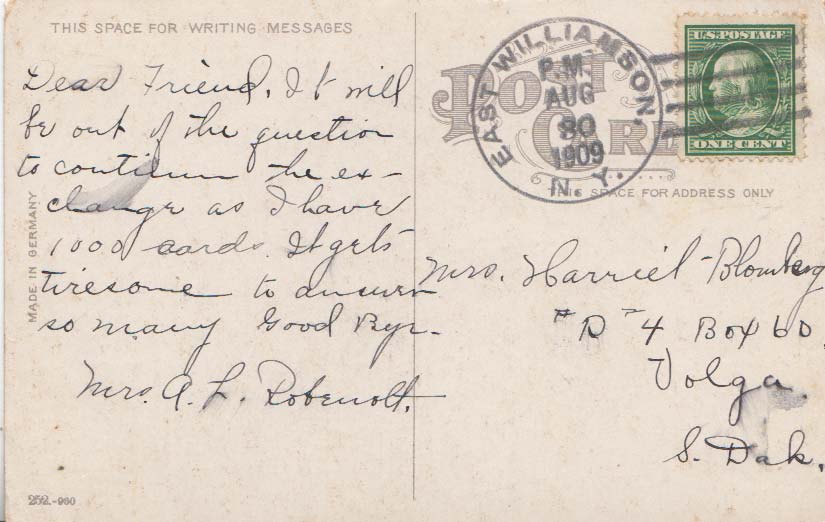 THIS SPACE FOR WRITING MESSAGES
Dear Friend. It will
be out of the question
to continue the ex-
change as I have
1000 cards. It gets
tiresome to answer
so many Good Bye.
Mrs. A. L. Robenolt.
MADE IN GERMANY
252.-960
POST CARD
EAST WILLIAMSON
P.M.
AUG
30
1909
N. Y.
U.S. POSTAGE
ONE CENT
THIS SPACE FOR ADDRESS ONLY
Mrs. Harriet Blomberg
"R" 4 Box 60.
Volga.
S. Dak.